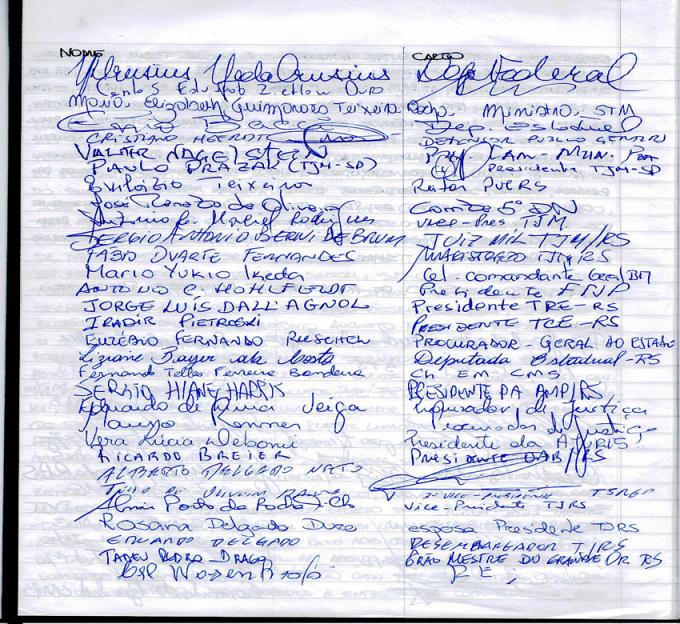 NOME CARGO
Yeda Crusius Dep. Federal
Carlos Eduardo Zietlow Duro
Maria Elizabeth Guimarães Teixeira Rocha Ministra STM
Dep. Estadual
CRISTIANO HEERDT DEFENSOR PUBLICO GERAL
VALTER NAGELSTEIN
PAULO PRAZAK (TJM-SP) Presidente TJM-SP
Evilázio Teixeira Reitor PUCRS
José Renato de Oliveira Comte 5º DN
Antonio C. Maciel Rodrigues Vice-Pres TJM
SERGIO ANTONIO BERNI DE BRUM JUIZ MIL TJM/RS
FABIO DUARTE FERNANDES MAGISTRADO TJM/RS
MARIO YUKIO Ikeda Cel. comandante Geral BM
ANTONIO C. HOHLFELDT Presidente FTSP
JORGE LUÍS DALL'AGNOL Presidente TRE-RS
IRADIR PIETROSKI PRESIDENTE TCE-RS
EUZÉBIO FERNANDO RUSCHEL PROCURADOR-GERAL DO ESTADO
Liziane Bayer da Costa Deputada Estadual-RS
Fernando Telles Ferreira Bandeira Ch EM CMS
SERGIO HIANE HARRIS PRESIDENTE DA AMP/RS
Eduardo de Lima Veiga Procurador de Justiça
Mauro Renner Procurador de Justiça
Vera Lúcia Deboni Presidente da AJURIS
RICARDO BREIER PRESIDENTE OAB/RS
ALBERTO DELGADO NETO
Túlio de Oliveira Martins
Almir Porto da Rocha Fº Vice-Presidente TJRS
Rosana Delgado Duro esposa Presidente TJRS
EDUARDO DELGADO DESEMBARGADOR TJRS
TADEU PEDRO DRAGO GRÃO MESTRE DO GRANDE OR RS